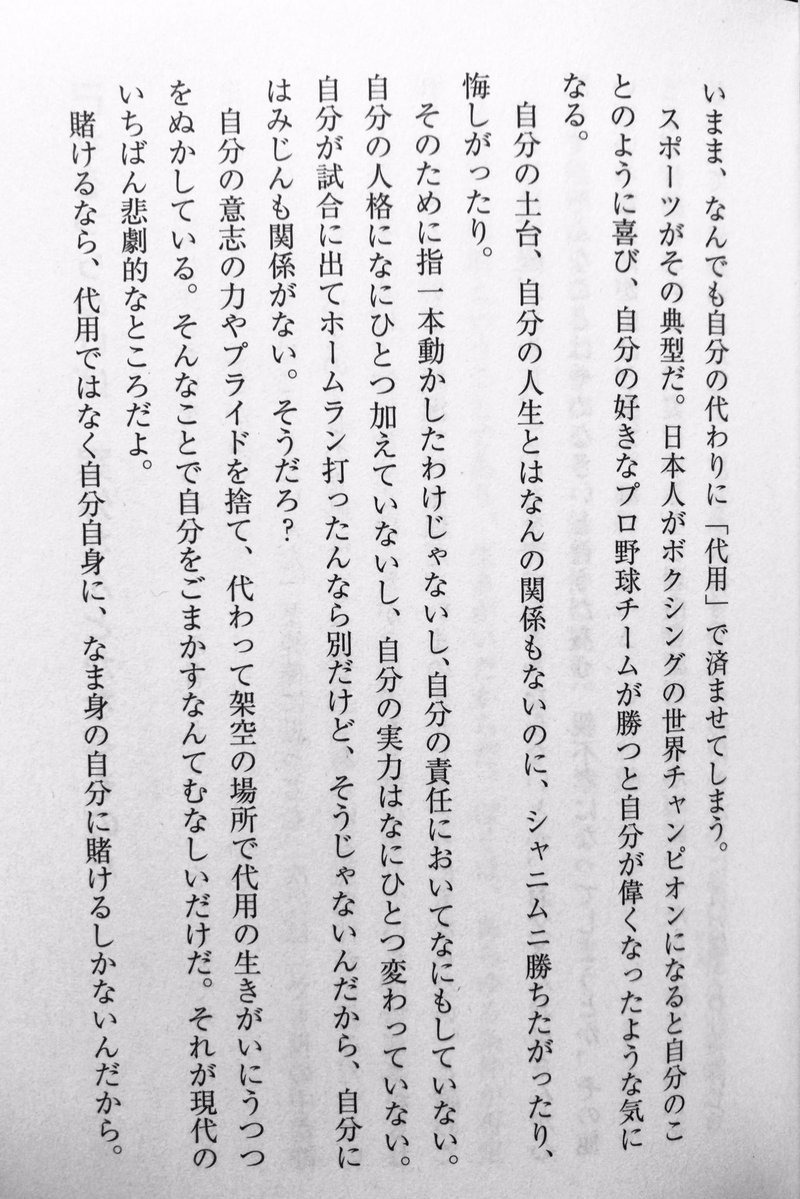 いまま、なんでも自分の代わりに「代用」で済ませてしまう。
スポーツがその典型だ。日本人がボクシングの世界チャンピオンになると自分のこ
とのように喜び、自分の好きなプロ野球チームが勝つと自分が偉くなったような気に
なる。
自分の土台、自分の人生とはなんの関係もないのに、シャニムニ勝ちたがったり、
悔しがったり。
そのために指一本動かしたわけじゃないし、自分の責任においてなにもしていない。
自分の人格になにひとつ加えていないし、自分の実力はなにひとつ変わっていない。
自分が試合に出てホームラン打ったんなら別だけど、そうじゃないんだから、自分に
はみじんも関係がない。そうだろ？
自分の意志の力やプライドを捨て、代わって架空の場所で代用の生きがいにうつつ
をぬかしている。そんなことで自分をごまかすなんてむなしいだけだ。それが現代の
いちばん悲劇的なところだよ。
賭けるなら、代用ではなく自分自身に、なま身の自分に賭けるしかないんだから。